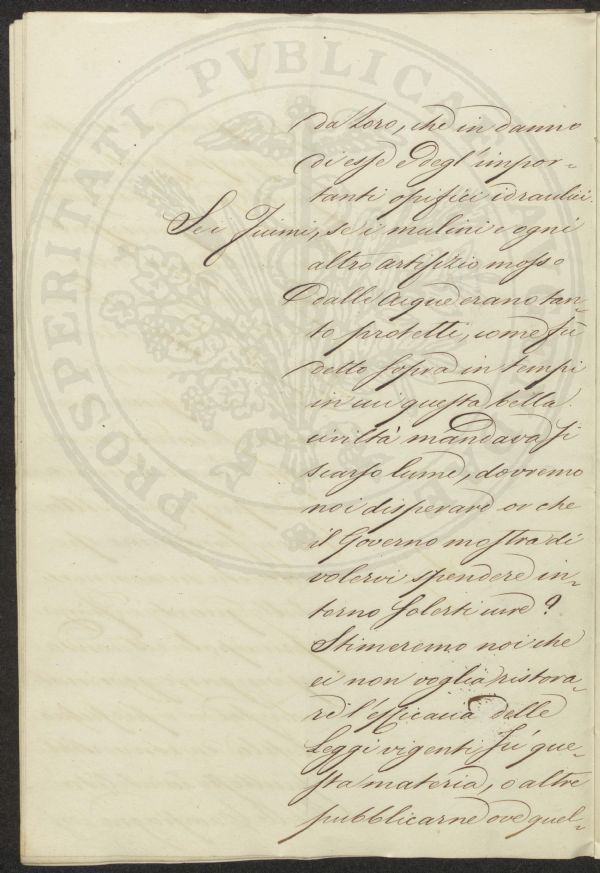 da Loro, che in danno
di esse e degl' impor-
tanti opifici idraulici.
Se i Fiumi, se i mulini e ogni
altro artifizio mosso
dalle Acque erano tan-
to protetti, come fù
detto sopra in tempi
in cui questa bella
civiltà mandava sì
scarso lume, dovremo
noi disperare or che
il Governo mostra di
volervi spendere in-
torno solerti cure?
Stimeremo noi che
ei non voglia ristora-
re l'efficacia delle
Leggi vigenti sù que-
sta materia, o altre
pubblicarne ove quel-
PROSPERITATI PVBLICAE AVGENDAE